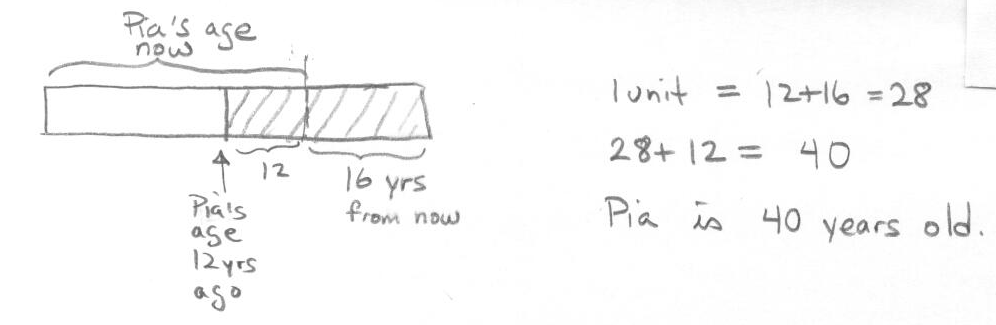 Pia's age
now
12
16 yrs
from now
Pia's
age
12yrs
ago
1 unit = 12+16 = 28
28 + 12 = 40
Pia is 40 years old.